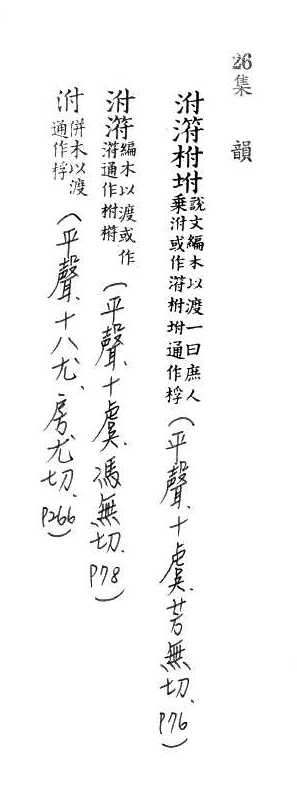 26集 韻
泭柎坿
說文編木以渡一曰庶人
乘泭或作柎坿通作桴
(平聲、十虞、芳無切、P76)
泭
編木以渡或作
通作柎
(平聲、十虞、馮無切、P78)
泭
併木以渡
通作桴
(平聲、十八尤、房尤切、P266)